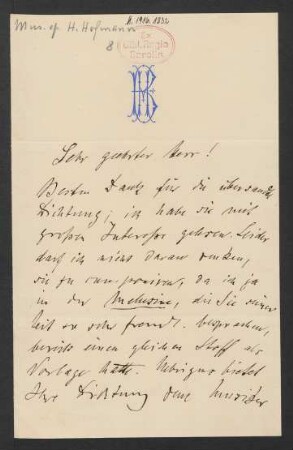 Mus. ep. H. Hofmann
8
M. 1916. 1832
Ex
Bibl. Regia
Berolin.
Sehr geehrter Herr!
Besten Dank für die übersandte
Dichtung; ich habe sie mit
großem Interesse gelesen. Leider
darf ich nicht daran denken,
sie zu componiren, da ich ja
in der Melusine, die Sie seiner
Zeit so sehr freundl. besprachen,
bereits einen gleichen Stoff als
Vorlage hatte. Uebrigens bietet
Ihre Dichtung dem Musiker